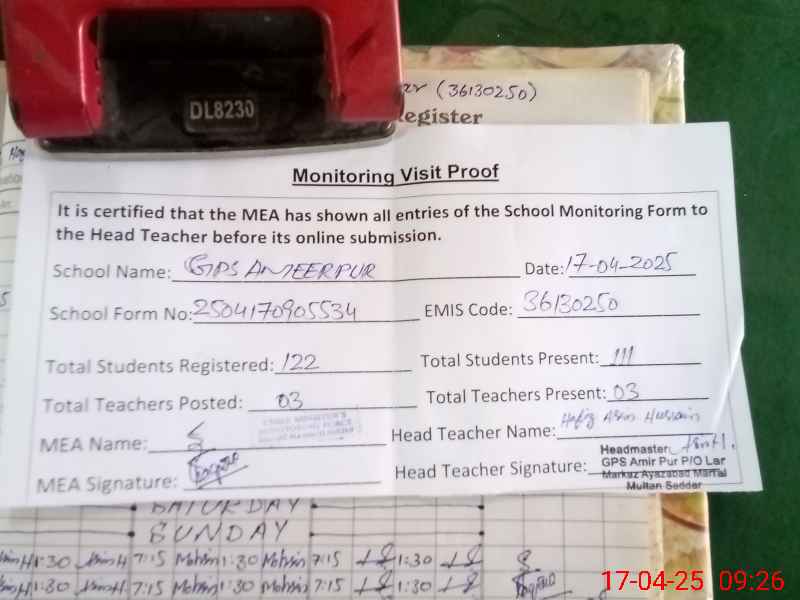 DL8230
(36130250)
Register
Monitoring Visit Proof
It is certified that the MEA has shown all entries of the School Monitoring Form to
the Head Teacher before its online submission.
School Name: GPS AMEERPUR Date: 17-04-2025
School Form No: 2504170905534 EMIS Code: 36130250
Total Students Registered: 122 Total Students Present: 111
Total Teachers Posted: 03 Total Teachers Present: 03
MEA Name: Head Teacher Name: Hafiz Asim Hussain
MEA Signature: Head Teacher Signature:
Headmaster
GPS Amir Pur P/O Lar
Markaz Ayazabad Marral
Multan Saddar
SATURDAY
SUNDAY
1:30 7:15 Mohsin 1:30 Mohsin 7:15 1:30
1:30 7:15 Mohsin 1:30 Mohsin 7:15 1:30
17-04-25 09:26